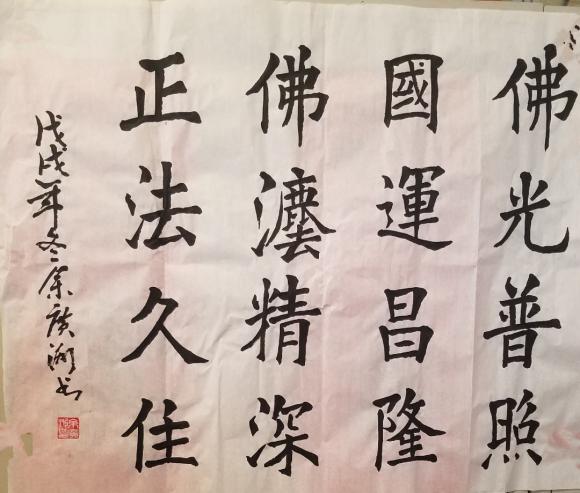 佛光普照
國運昌隆
佛灋精深
正法久住
戊戌年冬余廣湖书